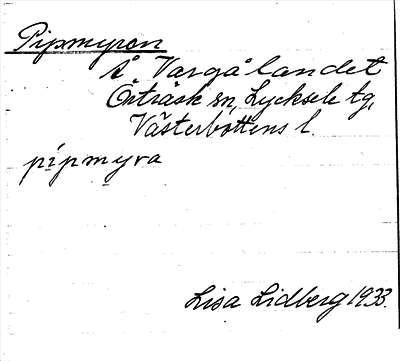 Pipmyren
å Vargålandet
Örträsk sn, Lycksele tg,
Västerbottens l.
pipmyra
Lisa Lidberg 1933.